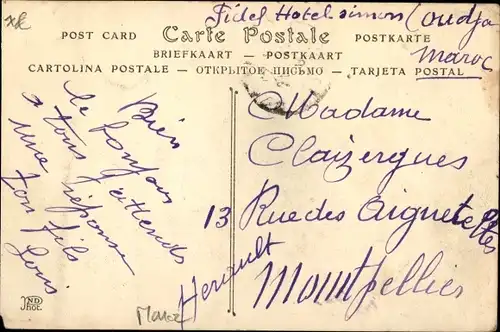 Fidel Hotel simon (oudja
maroc
POST CARD Carte Postale POSTKARTE
BRIEFKAART — POSTKAART
CARTOLINA POSTALE — ОТКРЫТОЕ ПИСЬМО — TARJETA POSTAL
Bien
le bonjour
a tous j'attends
une réponse
ton fils
Louis
Madame
Clauzergues
13 Rue des Aiguerelles
Montpellier
Herault
ND
Phot.
Maroc